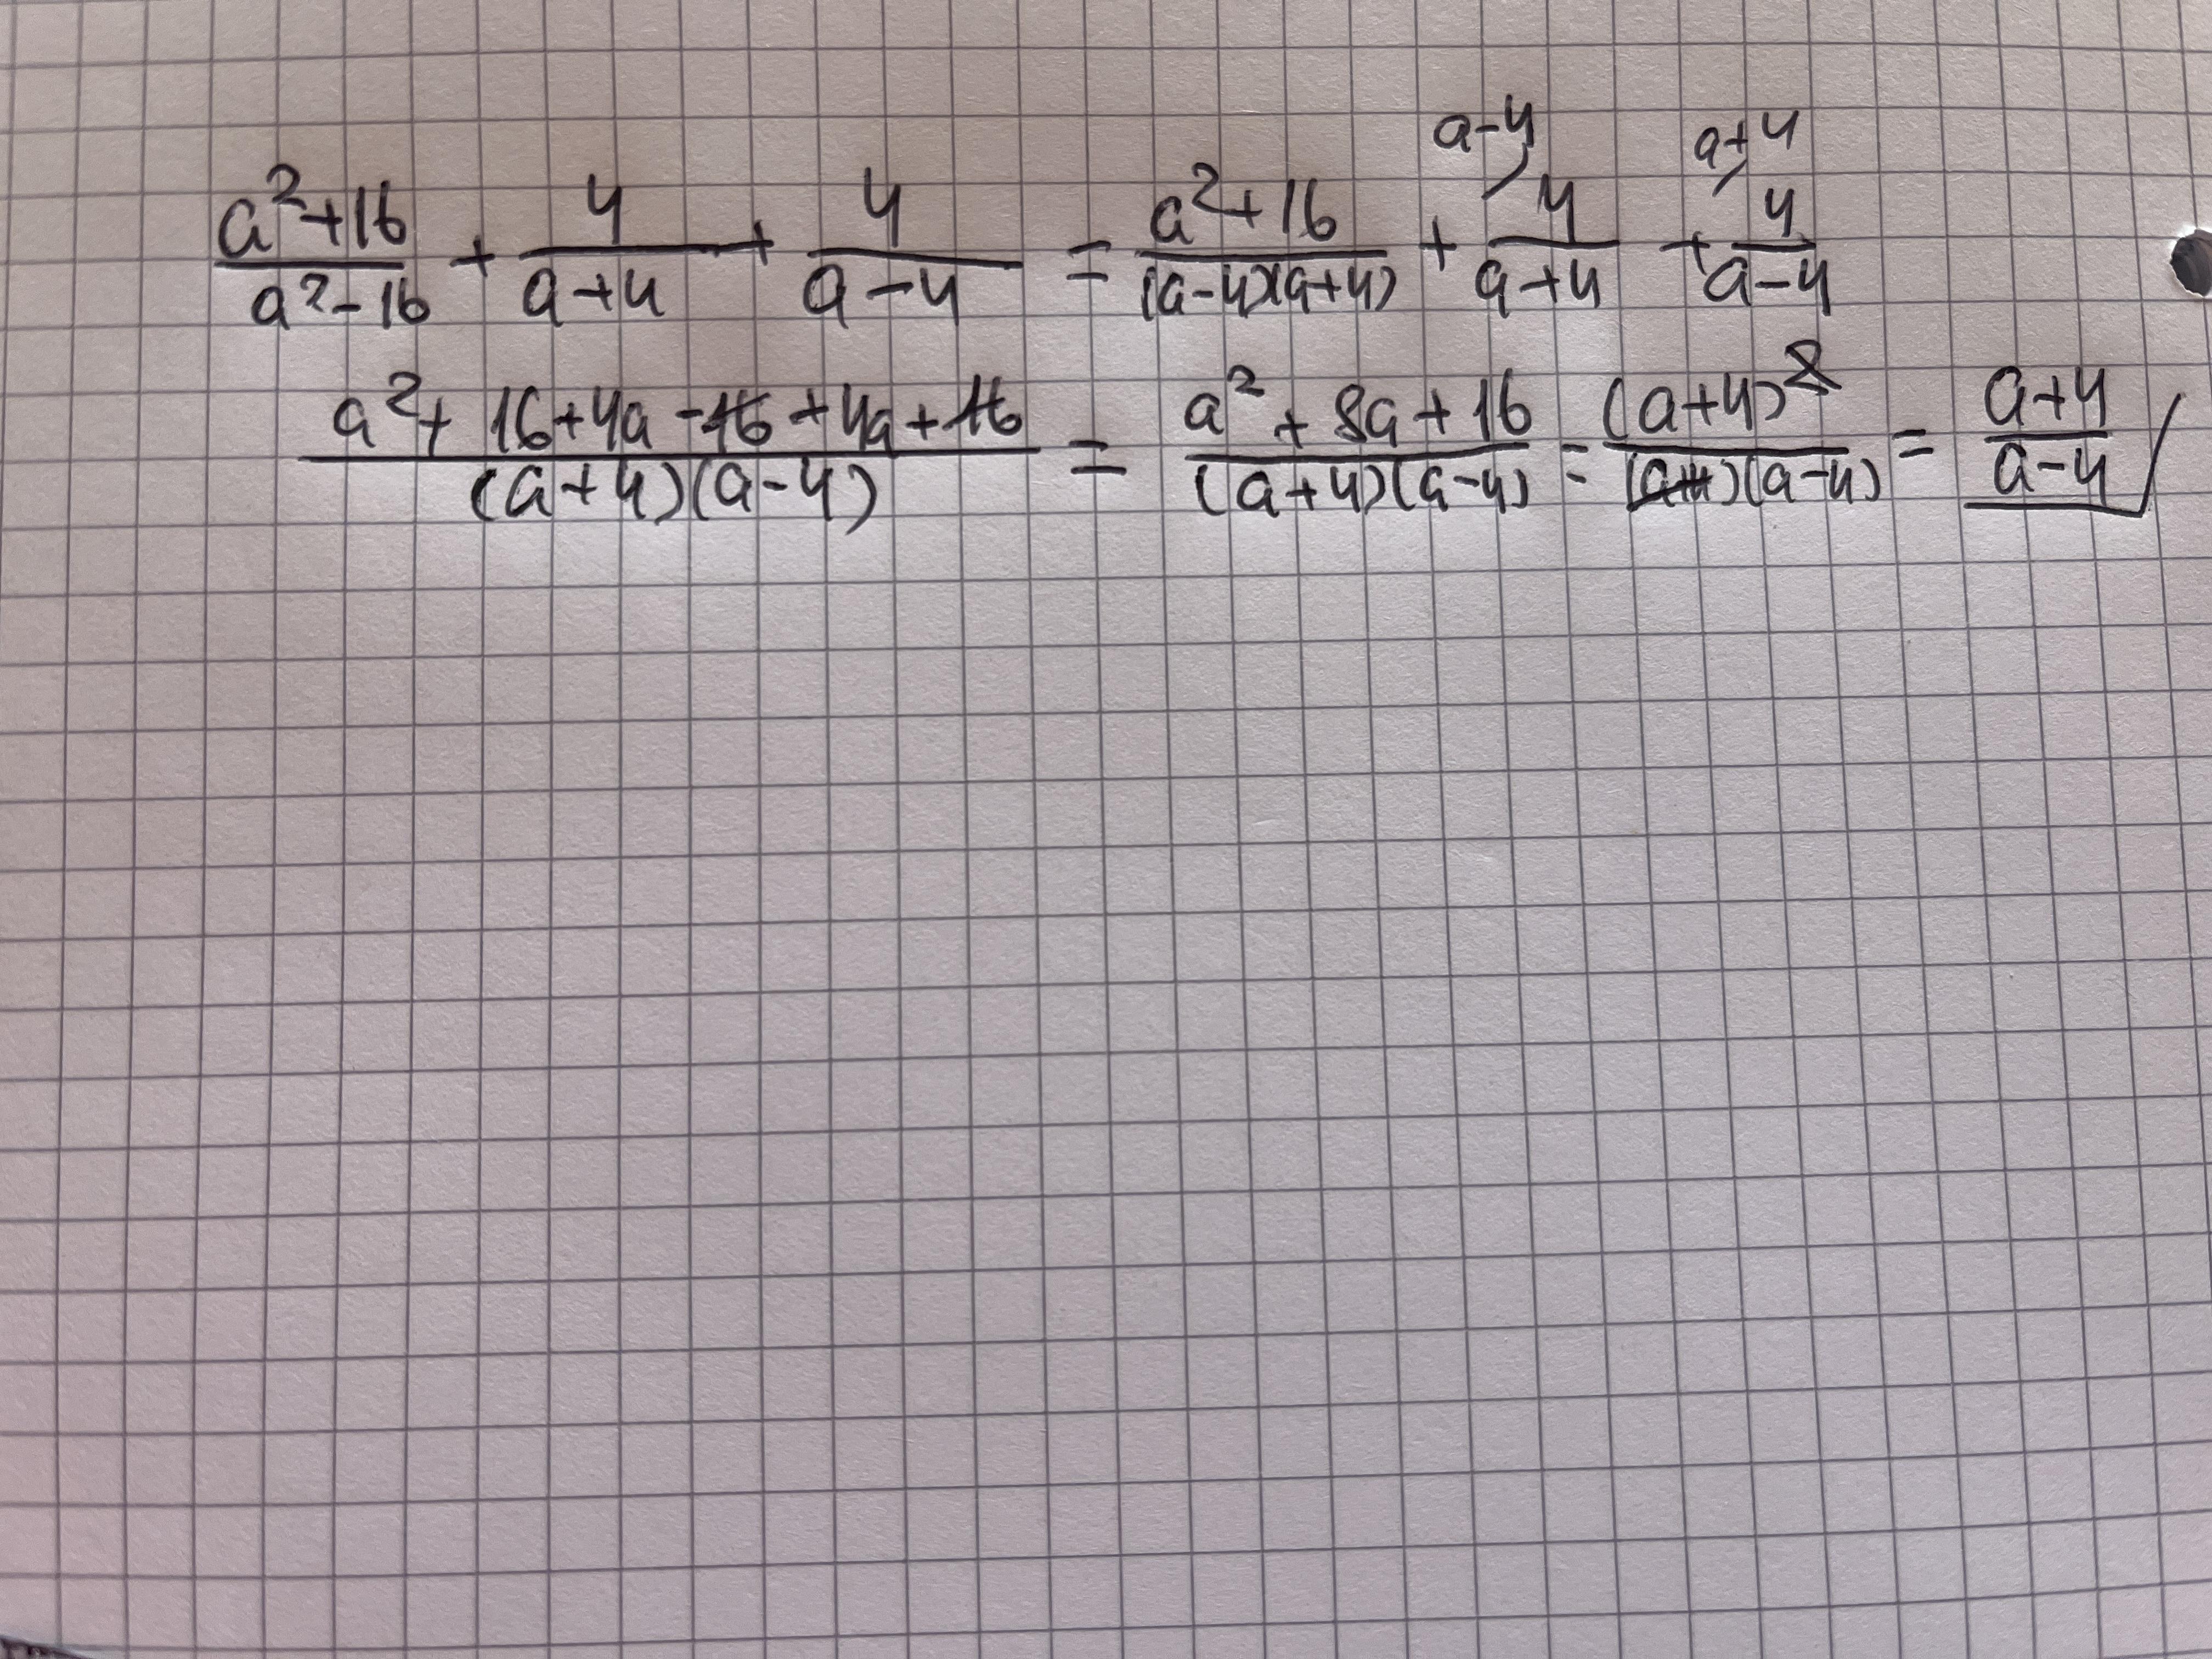 a²+16/a²-16 + 4/a+4 + 4/a-4 = a²+16/(a-4)(a+4) + a-4) 4/a+4 + a+4) 4/a-4
a²+16+4a-16+4a+16/(a+4)(a-4) = a²+8a+16/(a+4)(a-4) = (a+4)²/(a+4)(a-4) = a+4/a-4